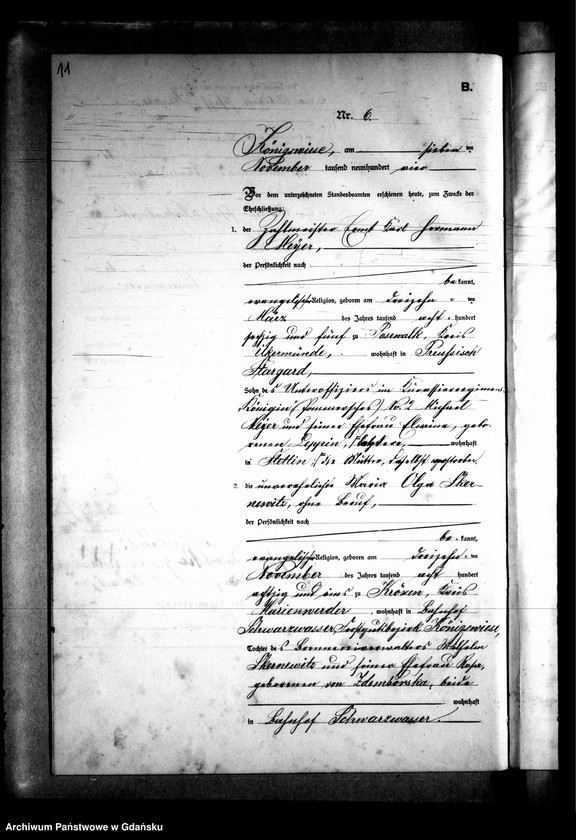 11
B.
Nr. 6.
Königswiese, am sieben ten
November tausend neunhundert vier
Vor dem unterzeichneten Standesbeamten erschienen heute, zum Zwecke der
Eheschließung:
1. der Zahlmeister Ernst Karl Hermann
Meyer,
der Persönlichkeit nach
bekannt,
evangelischer Religion, geboren am dreizehn ten
März des Jahres tausend acht hundert
und fünf zu Pasewalk, Kreis
Ückermünde, wohnhaft in Preußisch
Stargard,
Sohn des Unteroffiziers im Kürassierregiment
Königin (Pommersches) No. 2 Michael
Meyer und seiner Ehefrau gebo-
renen letztere, wohnhaft
in Stettin, die Mutter, daselbst verstorben.
2. die unverehelichte Maria Olga Sker-
newitz, ohne Beruf,
der Persönlichkeit nach
bekannt,
evangelischer Religion, geboren am dreizehn ten
November des Jahres tausend acht hundert
achtzig und eins zu Kröxen, Kreis
Marienwerder, wohnhaft in Bahnhof
Schwarzwasser, Forstgutsbezirk Königswiese,
Tochter des Wilhelm
Skernewitz und seiner Ehefrau Rosa,
geborenen von beide
wohnhaft
in Bahnhof Schwarzwasser.
Archiwum Państwowe w Gdańsku